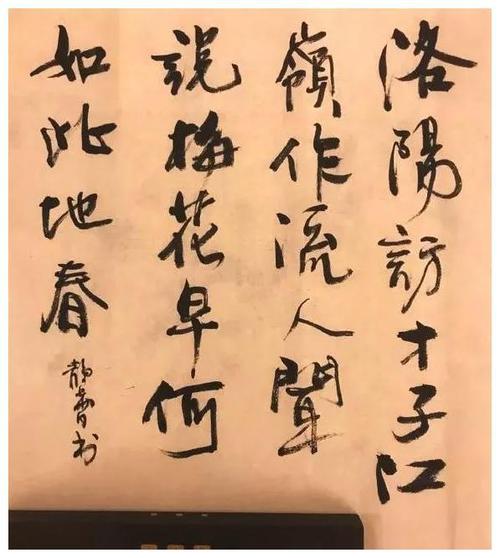 洛陽訪才子江
嶺作流人聞
說梅花早何
如此地春
靜香书